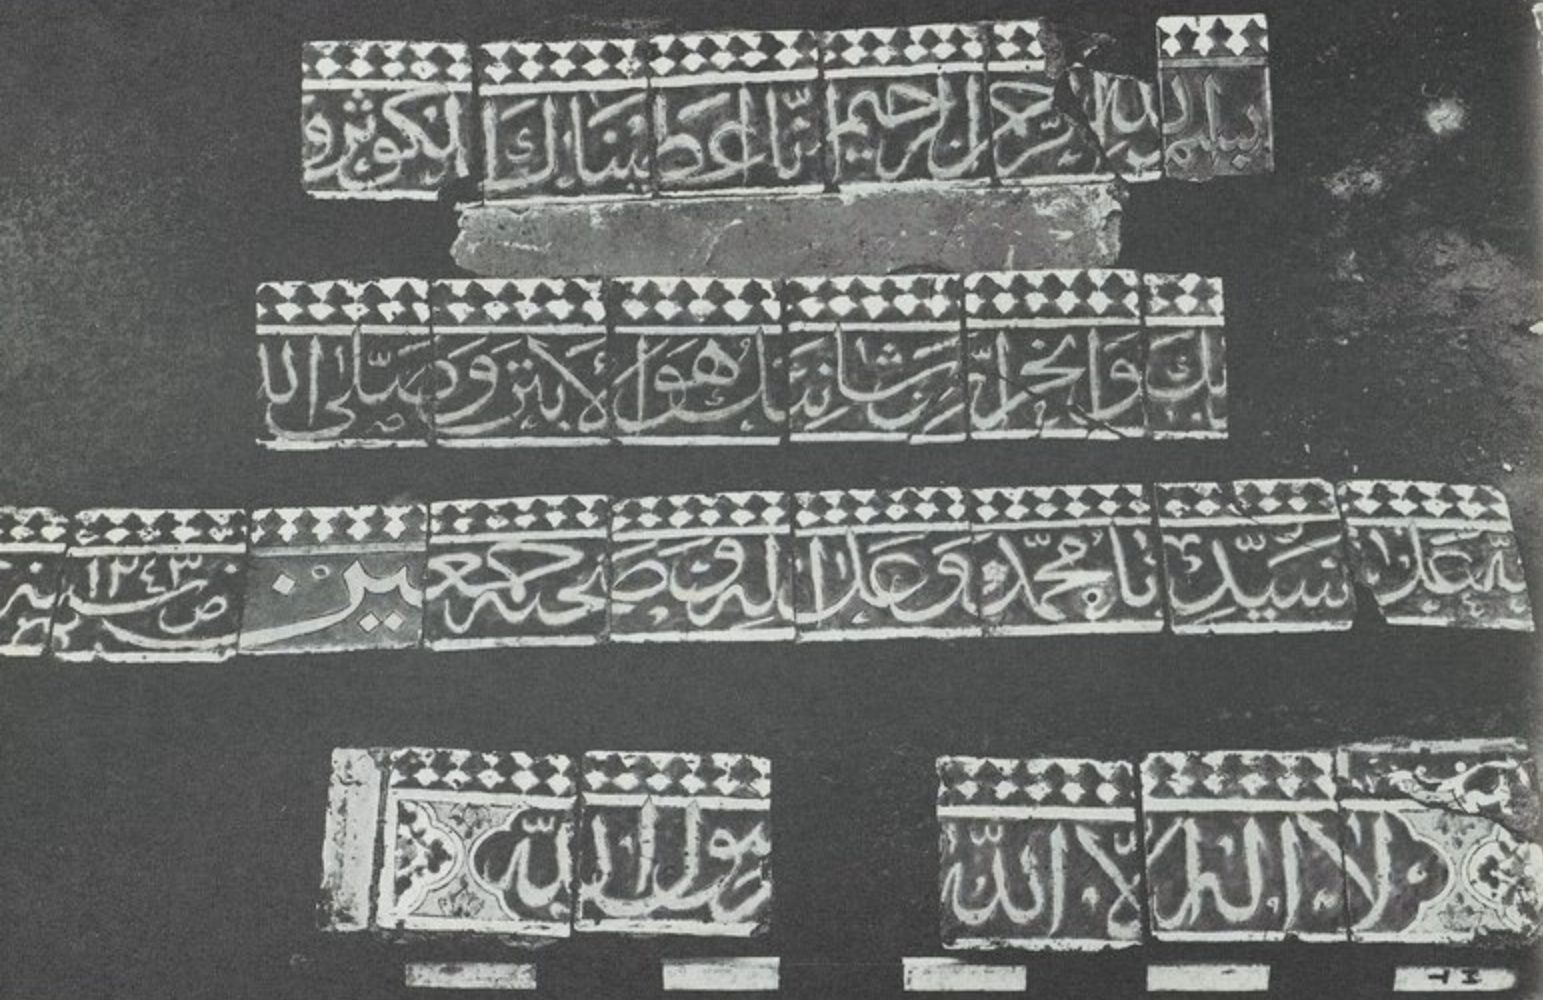 بسم الله الرحمن الرحيم انا اعطيناك الكوثر ف
بك وانحر ان شانئك هو الابتر و صلى الل
ه على سيدنا محمد وعلى اله وصحبه جمعين سنه ١٢٤٣
لا اله الا الله رسول الله